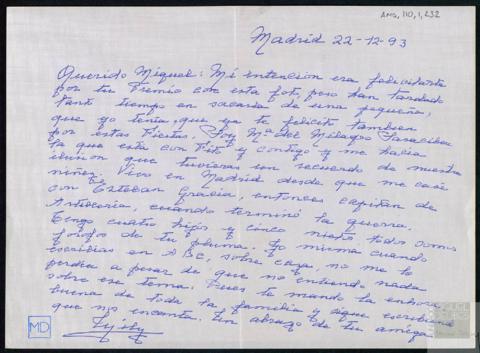 AMD, 110, 1, 232
Madrid 22-12-93
Querido Miguel: Mi intencion era felicitarte
por tu Premio con esta foto, pero han tardado
tanto tiempo en sacarla de una pequeña,
que yo tenia, que ya te felicito tambien
por estas Fiestas. Soy Mª del Milagro
la que esta con Tito y contigo y me hacia
ilusion que tuvieras un recuerdo de nuestra
niñez. Vivo en Madrid desde que me casé
con Esteban Gracia, entonces capitan de
Artilleria, cuando terminó la guerra.
Tengo cuatro hijos y cinco nietos todos somos
de tu pluma. Yo misma cuando
escribias en ABC, sobre caza, no me lo
perdia a pesar de que no entiendo nada
sobre ese tema. Pues te mando la enhora
buena de toda la familia y sigue escribiendo
que nos encanta. Un abrazo de tu amiga
MD